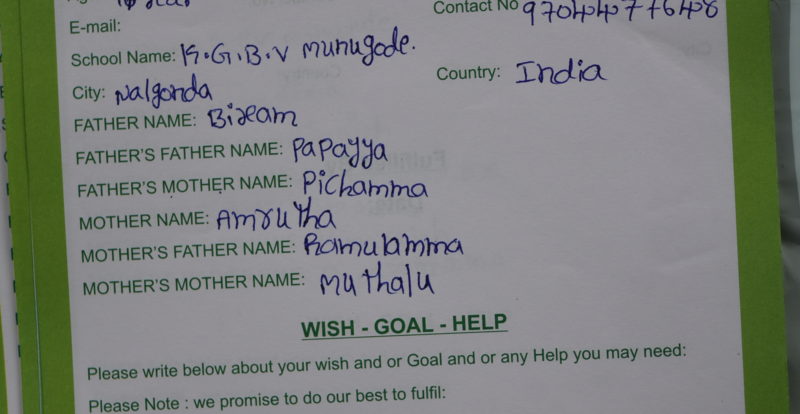 Contact No 9704477648
E-mail:
School Name: K.G.B.V munugode.
City: Nalgonda Country: India
FATHER NAME: Bixam
FATHER'S FATHER NAME: Papayya
FATHER'S MOTHER NAME: Pichamma
MOTHER NAME: Amrutha
MOTHER'S FATHER NAME: Ramulamma
MOTHER'S MOTHER NAME: Muthalu
WISH - GOAL - HELP
Please write below about your wish and or Goal and or any Help you may need:
Please Note : we promise to do our best to fulfil: